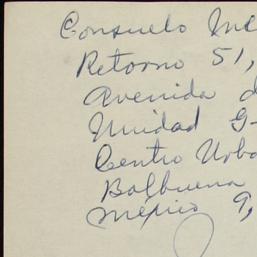 Consuelo Mc
Retorno 51,
Avenida d
Unidad G-
Centro Urba
Balbuena
México 9,